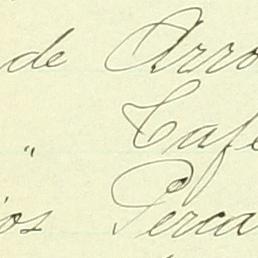 de Arro
" Café
ios Perca